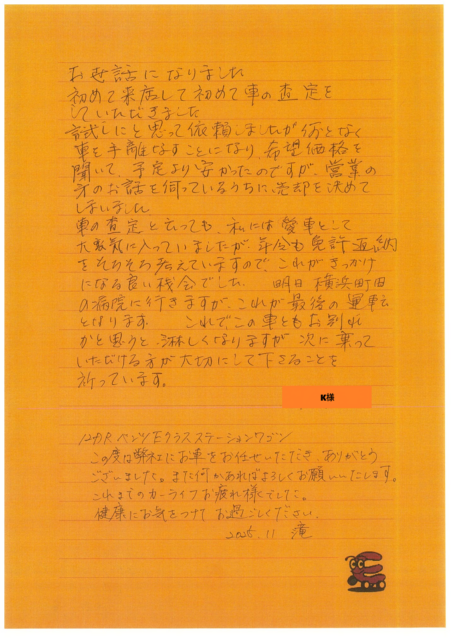 お世話になりました
初めて来店して初めて車の査定を
していただきました
試しにと思って依頼しましたが何となく
車を手離なすことになり、希望価格を
聞いて、予定より安かったのですが、営業の
方のお話を伺っているうちに、売却を決めて
しまいました
車の査定と云っても、私には愛車として
大変気に入っていましたが、年令も免許返納
をそろそろ考えていますので、これがきっかけ
になる良い機会でした。 明日 横浜町田
の病院に行きますが、これが最後の運転
となります. これでこの車ともお別れ
かと思うと、淋しくなりますが 次に乗って
いただける方が大切にして下さることを
祈っています。
K様
ベンツEクラスステーションワゴン
この度は弊社にお車をお任せいただき、ありがとう
ございました。また何かあればよろしくお願いいたします。
これまでのカーライフお疲れ様でした。
健康にお気をつけてお過ごしください。
2025.11 滝